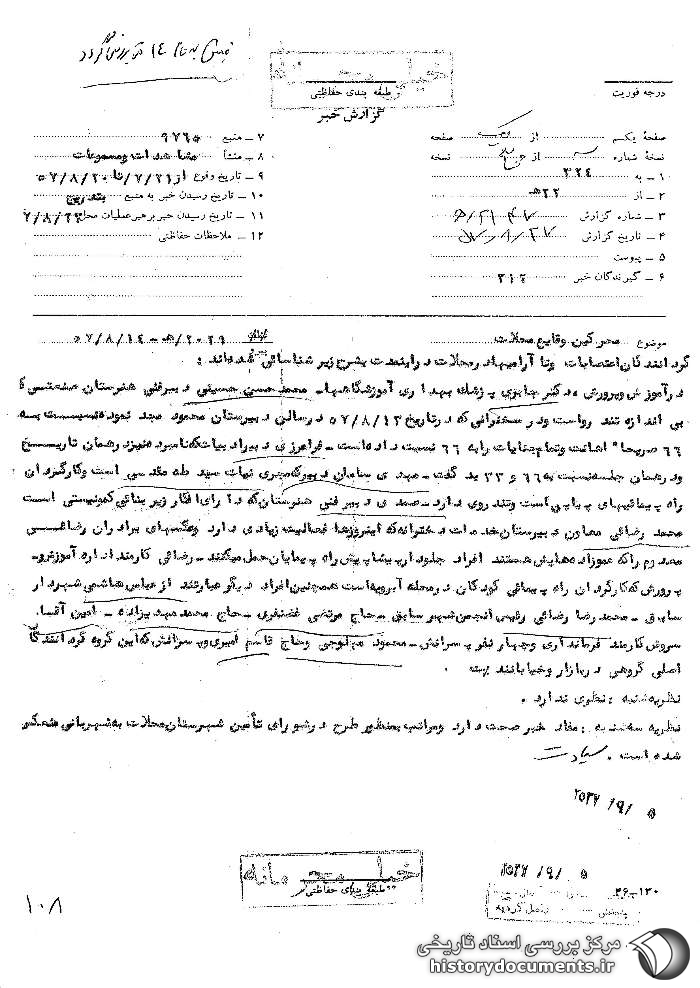 خیلی محرمانه
طبقه بندی حفاظتی
گزارش خبر
درجه فوریت
صفحهٔ یکم از یک صفحه
نسخهٔ شماره از نسخه
۱ ـ به ۳۲۴
۲ ـ از ۲۲هـ
۳ ـ شماره گزارش
۴ ـ تاریخ گزارش
۵ ـ پیوست
۶ ـ گیرندگان خبر ۳۱۲
۷ ـ منبع ۹۷۶۵
۸ ـ منشأ مشاهدات ومسموعات
۹ ـ تاریخ وقوع از ۵۷/۸/۲۰تا۷/۲۱
۱۰ ـ تاریخ رسیدن خبر به منبع بتدریج
۱۱ ـ تاریخ رسیدن خبر برهبر عملیات محل ۷/۸/۲۲
۱۲ ـ ملاحظات حفاظتی
موضوع محرکین وقایع محلات ۲۰۲۹/هـ ـ ۵۷/۸/۱۴
گردانندگان اعتصابات وناآرامیها در محلات در اینمدت بشرح زیر شناسائی شده‌اند :
در آموزش وپرورش ، دکتر جابری پزشک بهداری آموزشگاهها ـ محمد حسن حسینی دبیر فنی هنرستان صنعتی که
بی اندازه تند رو است ودر سخنرانی که در تاریخ ۵۷/۸/۱۳ در سالن دبیرستان محمود مجد نموده نسبت به
۶۶ صریحا" اهانت وتمام جنایات را به ۶۶ نسبت داده است ـ فرامرزی دبیر ادبیات که نامبرده نیز در همان تاریخ
ودر همان جلسه نسبت به ۶۶ و ۳۳ بد گفت ـ مهدی سامان دبیر که مجری نیات سید طه مقدسی است وکارگردان
راه پیمائیهای پیاپی است وتندروی دارد ـ صمدی دبیر فنی هنرستان که دارای افکار زیربنائی کمونیستی است
محمد رضائی معاون دبیرستان خدمات دخترانه که اینروزها فعالیت زیادی دارد وعکسهای برادران رضائی
معدوم را که عموزاده هایش هستند افراد جلودار پیشاپیش راه پیمایان حمل میکنند ـ رضائی کارمند اداره آموزش و
پرورش که کارگردان راه پیمائی کودکان در محله آبرویه است همچنین افراد دیگر عبارتند از عباس هاشمی شهردار
سابق ـ محمد رضا رضائی رئیس انجمن شهر سابق ـ حاج مرتضی غضنفری ـ حاج محمد مهدیزاده ـ امین آقسا،
سروش کارمند فرمانداری وچهار نفر پسرانش ـ محمود وحاج قاسم امیری وپسرانش که این گروه گردانندگان
اصلی گروهی در بازار وخیابانند .
نظریه شنبه : نظری ندارد .
نظریه سه شنبه : مفاد خبر صحت دارد ومراتب بمنظور طرح در شورای تأمین شهرستان محلات به شهربانی منعکس
شده است . سیادت
۲۵۳۷/۹/۵
خیلی محرمانه
طبقه بندی حفاظتی
۲۵۳۷/۹/۵
۳۶ـ۱۲۰
۱۰۸
مرکز بررسی اسناد تاریخی
historydocuments.ir